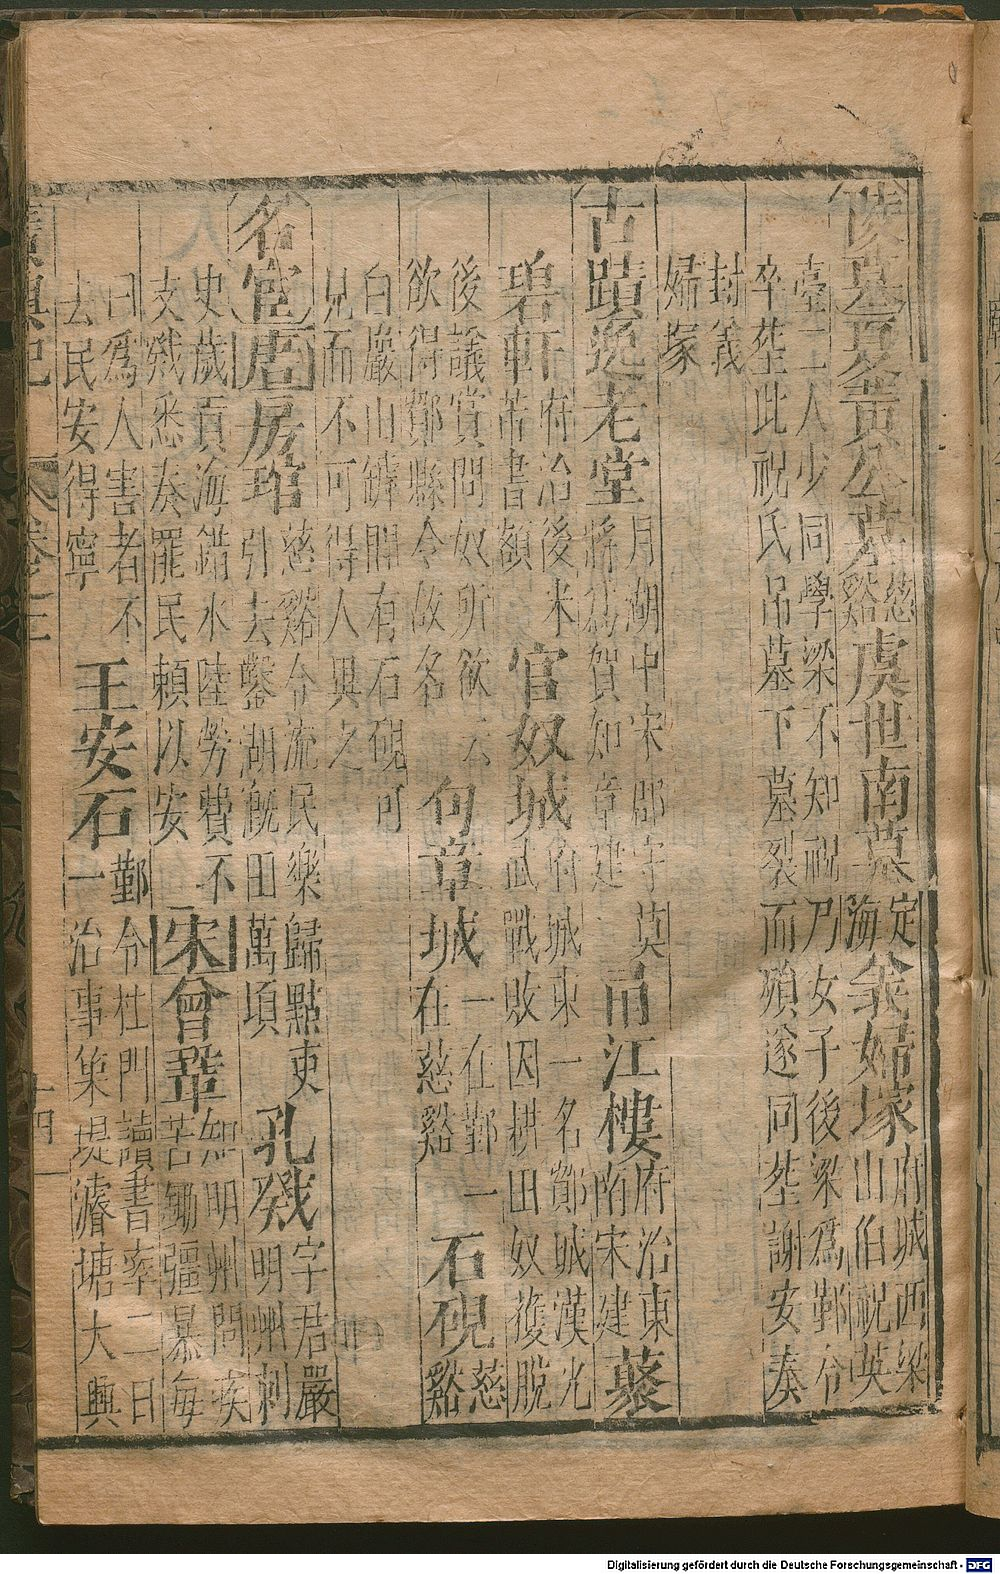 陵墓夏黃公墓慈谿虞世南墓定海義婦塚府城西梁山伯祝英
臺二人少同學梁不知祝乃女子後梁爲鄞令
卒塟此祝氏吊墓下墓裂而殞遂同塟謝安奏
封義
婦冢
古蹟逸老堂月湖中宋郡守莫將爲賀知章建甬江樓府治東隅宋建藂
碧軒府治後米芾書額官奴城府城東一名鄮城漢光武戰敗囚耕田奴獲脫
後議賞問奴所欲云欲得鄮縣令故名句章城一在鄞一在慈谿石硯慈谿
白巖山罅間有石硯可
見而不可得人異之
名宦唐房琯慈谿令流民樂歸點吏引去鑿湖溉田萬頃孔戣字君嚴明州刺
史歲貢海錯水陸勞費不支戣悉奏罷民頼以安宋曾鞏知明州問疾苦鋤彊暴每
曰爲人害者不去民安得寧王安石鄞令杜門讀書率二日一治事築堤濬塘大興
廣輿記 卷之十一 十四
Digitalisierung gefördert durch die Deutsche Forschungsgemeinschaft - DFG